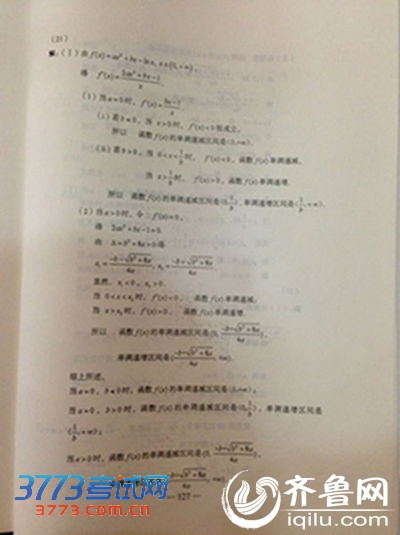 (21)
解：(Ⅰ) 由 f(x)=ax²+bx-lnx, x∈(0,+∞),
得 f'(x)=(2ax²+bx-1)/x.
(1) 当 a=0 时, f'(x)=(bx-1)/x.
(i) 若 b≤0, 当 x>0 时, f'(x)<0 恒成立,
所以 函数 f(x) 的单调递减区间是 (0,+∞).
(ii) 若 b>0, 当 0<x<1/b 时, f'(x)<0, 函数 f(x) 单调递减,
当 x>1/b 时, f'(x)>0, 函数 f(x) 单调递增.
所以 函数 f(x) 的单调递减区间是 (0,1/b), 单调递增区间是 (1/b,+∞).
(2) 当 a>0 时, 令 f'(x)=0,
得 2ax²+bx-1=0.
由 Δ=b²+8a>0 得
x₁=(-b-√(b²+8a))/4a, x₂=(-b+√(b²+8a))/4a.
显然, x₁<0, x₂>0.
当 0<x<x₂ 时, f'(x)<0, 函数 f(x) 单调递减;
当 x>x₂ 时, f'(x)>0, 函数 f(x) 单调递增.
所以 函数 f(x) 的单调递减区间是 (0, (-b+√(b²+8a))/4a),
单调递增区间是 ((-b+√(b²+8a))/4a, +∞).
综上所述,
当 a=0, b≤0 时, 函数 f(x) 的单调递减区间是 (0,+∞);
当 a=0, b>0 时, 函数 f(x) 的单调递减区间是 (0,1/b), 单调递增区间是
(1/b,+∞);
当 a>0 时, 函数 f(x) 的单调递减区间是 (0, (-b+√(b²+8a))/4a),
(-b+√(b²+8a))/4a, +∞).
3773考试网
3773.com.cn
— 127 —
齐鲁网
iqilu.com